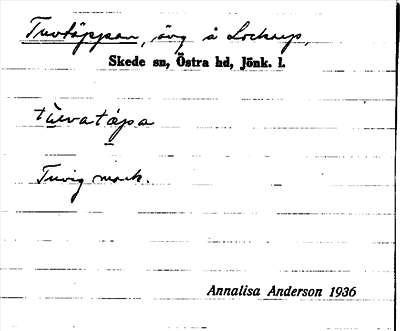 Tuvtäppan, ävg å Lockarp,
Skede sn, Östra hd, Jönk. l.
tùvatǫpa
Tuvig mark.
Annalisa Anderson 1936